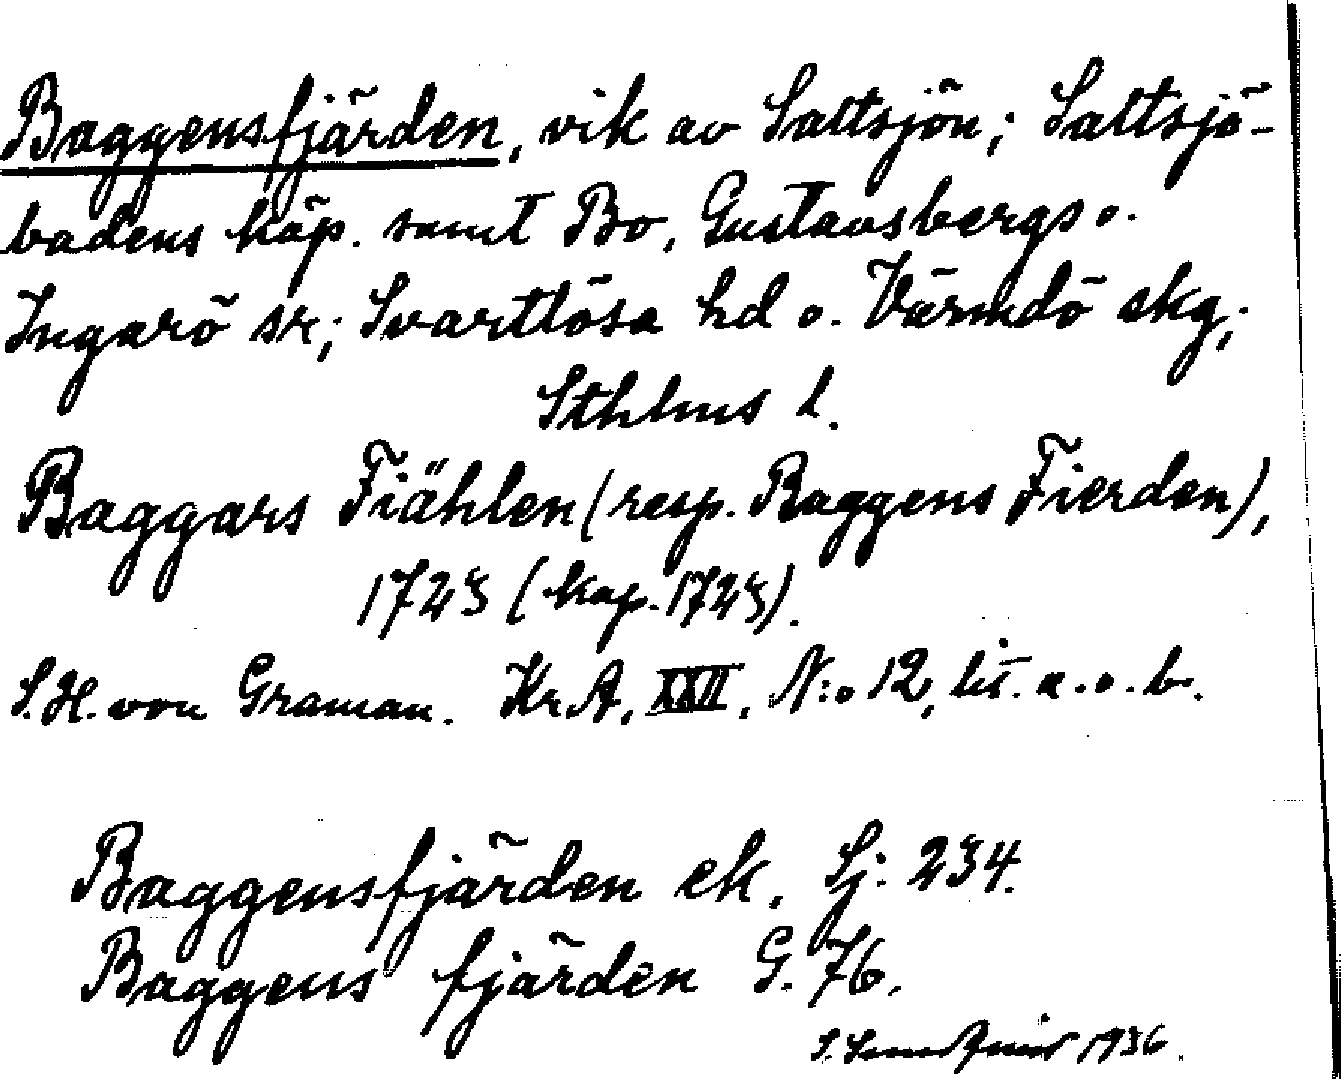 Baggensfjärden, vik av Saltsjön; Saltsjö-
badens köp. samt Bo, Gustavsbergs o.
Ingarö sr; Svartlösa hd o. Värmdö skg;
Sthlms l.
Baggars Fiählen (resp. Baggens Fierden),
1723 (kop. 1723).
S.H. von Graman. KrA, XXII, N:o 12, lit. a. o. b.
Baggensfjärden ek. Sj. 234.
Baggens fjärden G. 76.
1936.